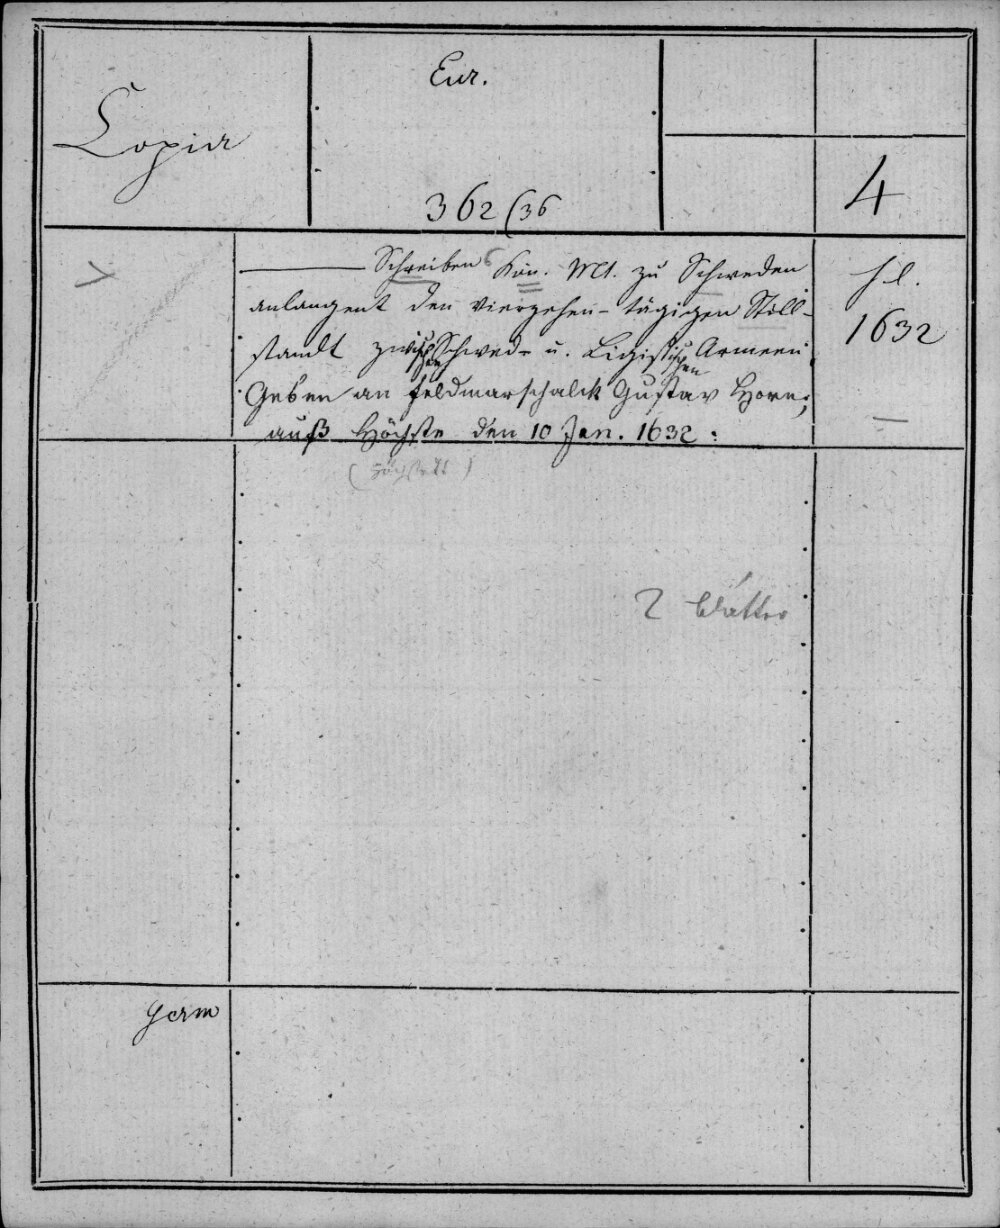 Eur.
Copia
362 (36
4
Schreiben Kön. Mt. zu Schweden
anlangent den viergehen-tägigen Still-
standt zwischen Schwed- u. Ligistischen Armeen
Geben an feldmarschalck Gustav Horn;
auß Höchste den 10 Jan. 1632.
s. l.
1632
(Höchstett)
2 Blätter
Germ